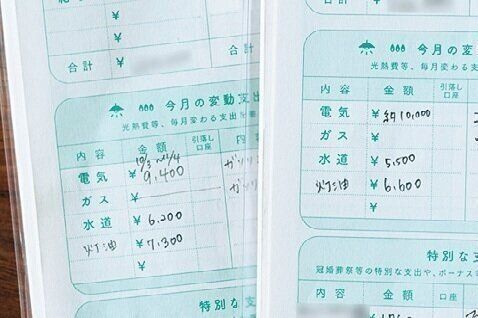 ¥
¥
合計 ¥
今月の変動支出
光熱費等、毎月変わる支出を書
内容 金額 引落し口座 内容
10/3〜11/4
電気 ¥ 9,400 ガソリン
ガス ¥
水道 ¥ 6,200
灯油 ¥ 7,300
¥
特別な
¥
合計 ¥ 合計
今月の変
光熱費等、毎月変わる支
内容 金額 引落し口座
電気 ¥ 約10,000
ガス ¥
水道 ¥ 5,500
灯油 ¥ 6,600
¥
特別な
冠婚葬祭等の特別な支出や、ボーナス
内容 金額 口座